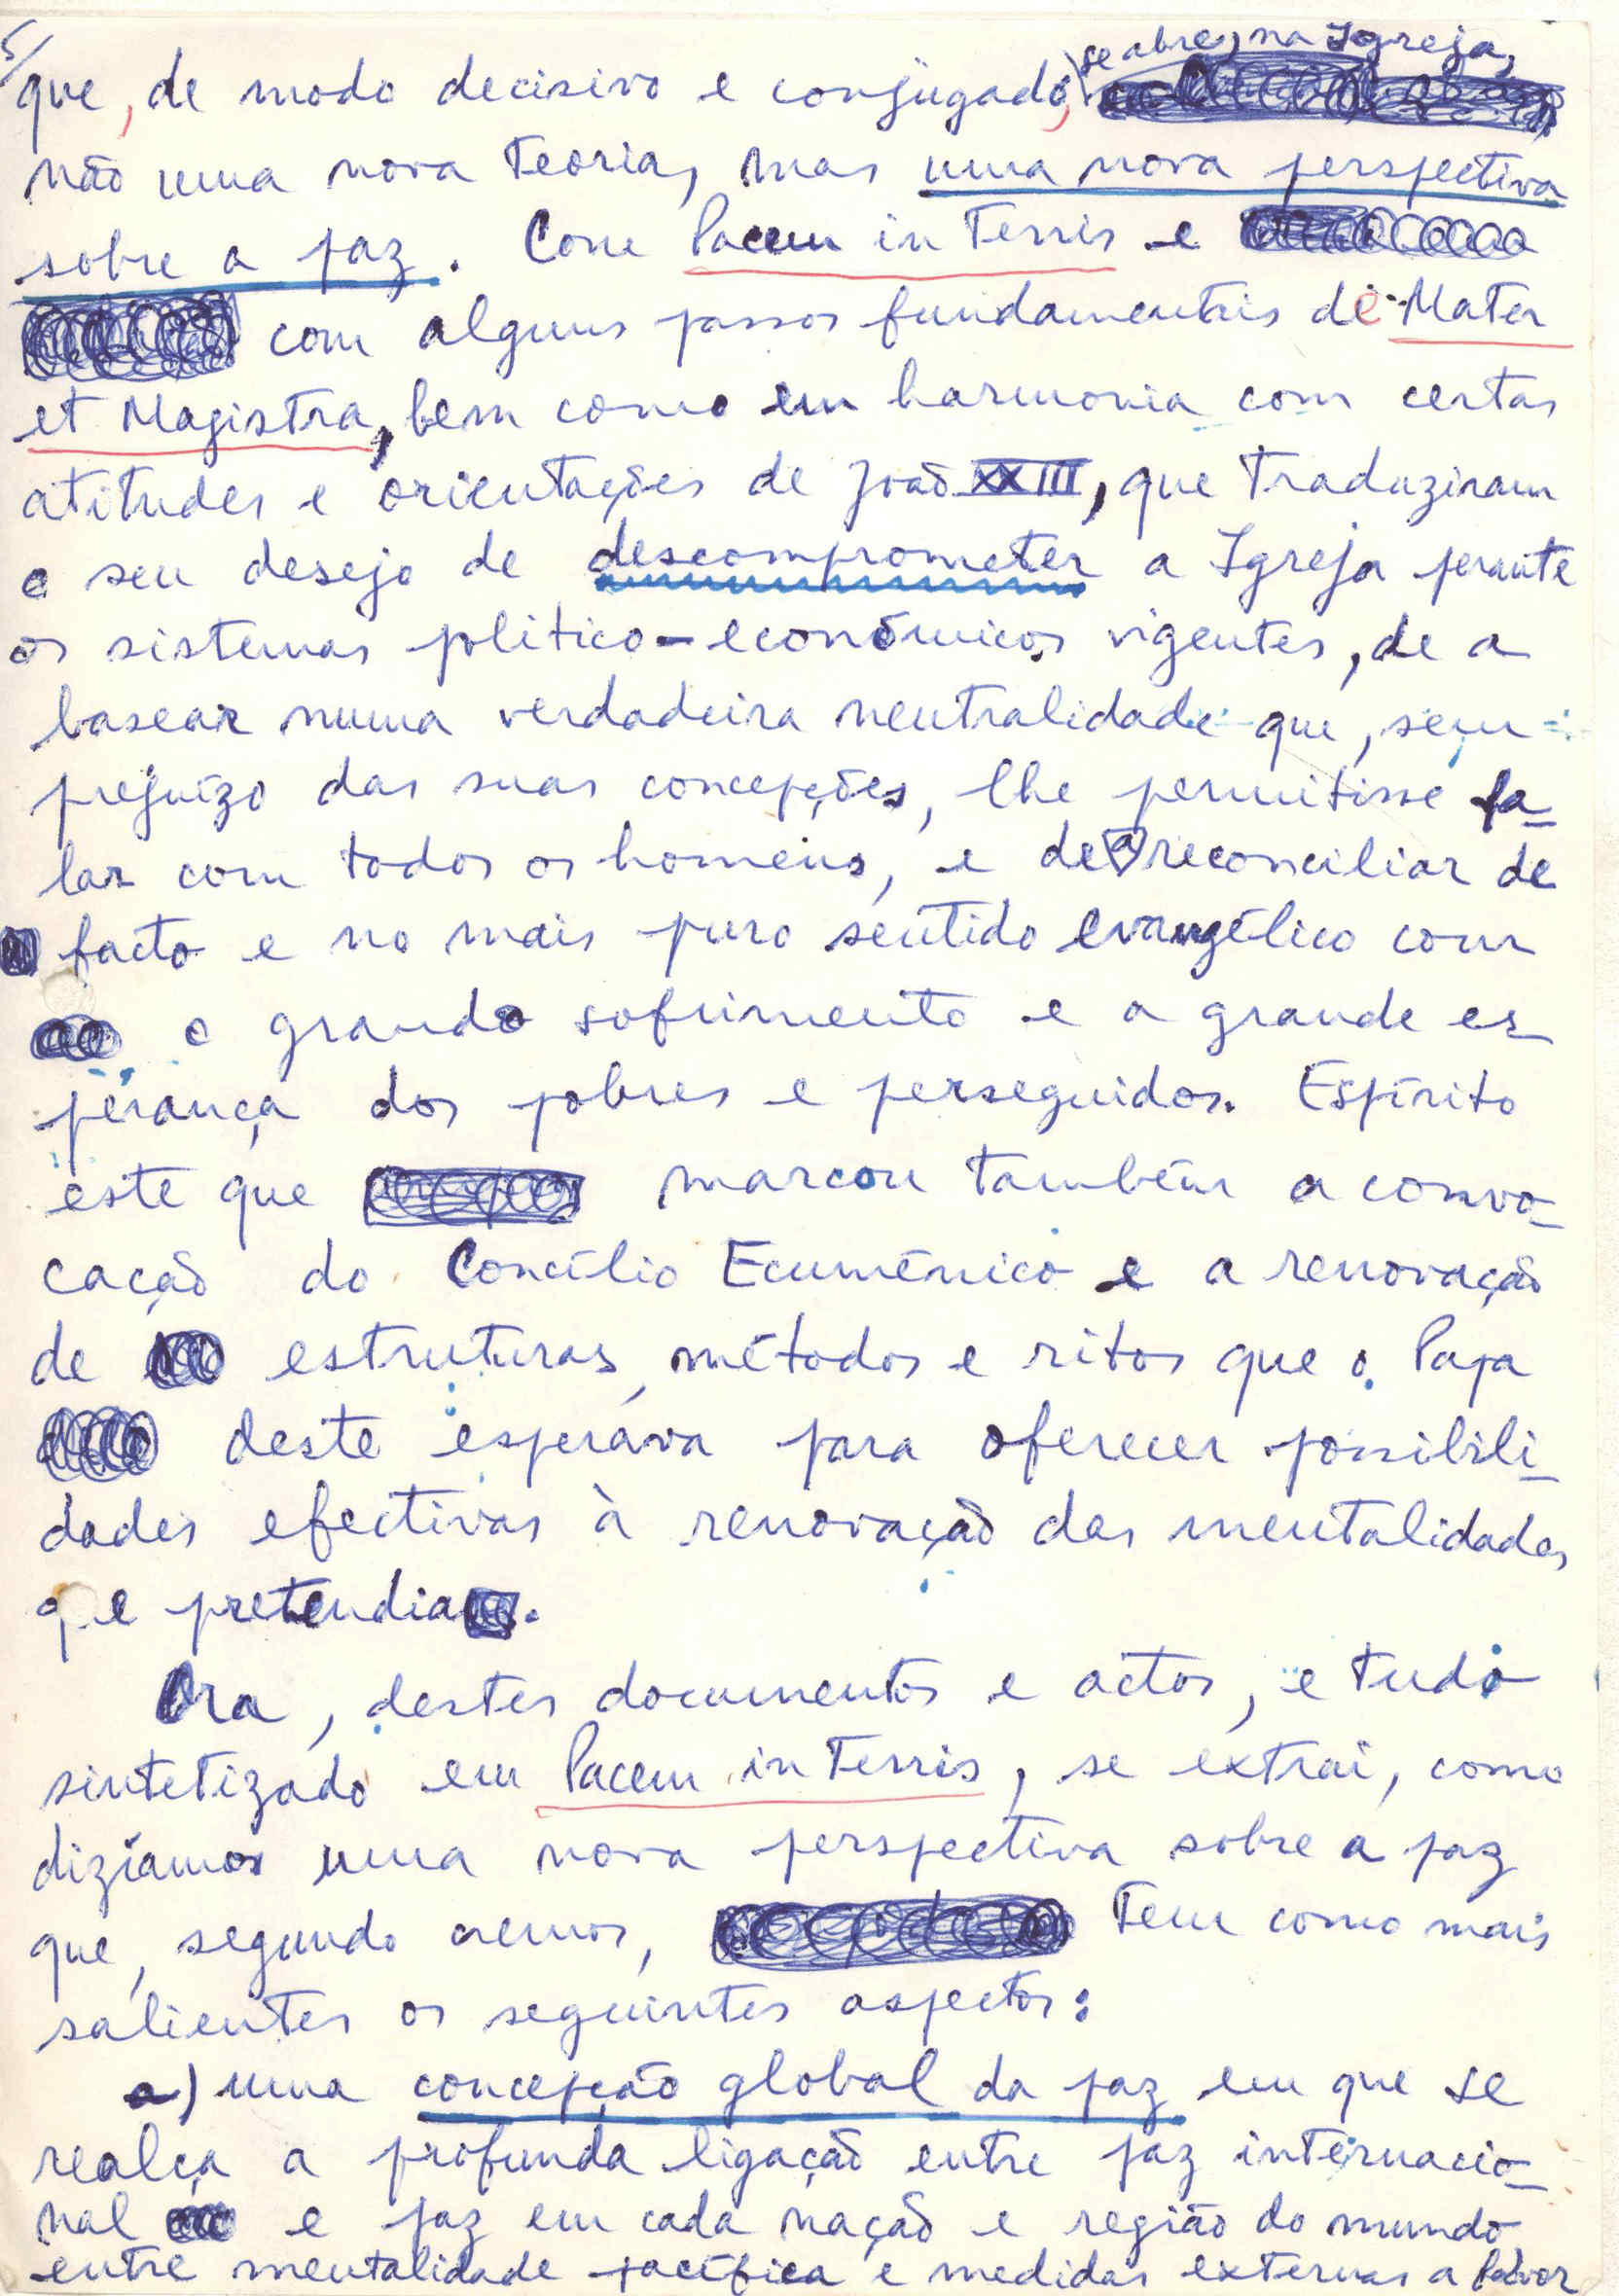 5/
se abre, na Igreja,
que, de modo decisivo e conjugado,
não uma nova teoria, mas uma nova perspectiva
sobre a paz. Com Pacem in Terris e
com alguns passos fundamentais de Mater
et Magistra, bem como em harmonia com certas
atitudes e orientações de João XXIII, que traduziram
o seu desejo de descomprometer a Igreja perante
os sistemas político-económicos vigentes, de a
basear numa verdadeira neutralidade que, sem
prejuízo das suas concepções, lhe permitisse fa-
lar com todos os homens, e de a reconciliar de
facto e no mais puro sentido evangélico com
o grande sofrimento e a grande es-
perança dos pobres e perseguidos. Espírito
este que marcou também a convo-
cação do Concílio Ecuménico e a renovação
de estruturas, métodos e ritos que o Papa
deste esperava para oferecer possibili-
dades efectivas à renovação das mentalidades
que pretendia.
Ora, destes documentos e actos, e tudo
sintetizado em Pacem in Terris, se extrai, como
dizíamos uma nova perspectiva sobre a paz
que, segundo cremos, tem como mais
salientes os seguintes aspectos:
a) uma concepção global da paz em que se
realça a profunda ligação entre paz internacio-
nal e paz em cada nação e região do mundo
entre mentalidade pacífica e medidas externas a favor